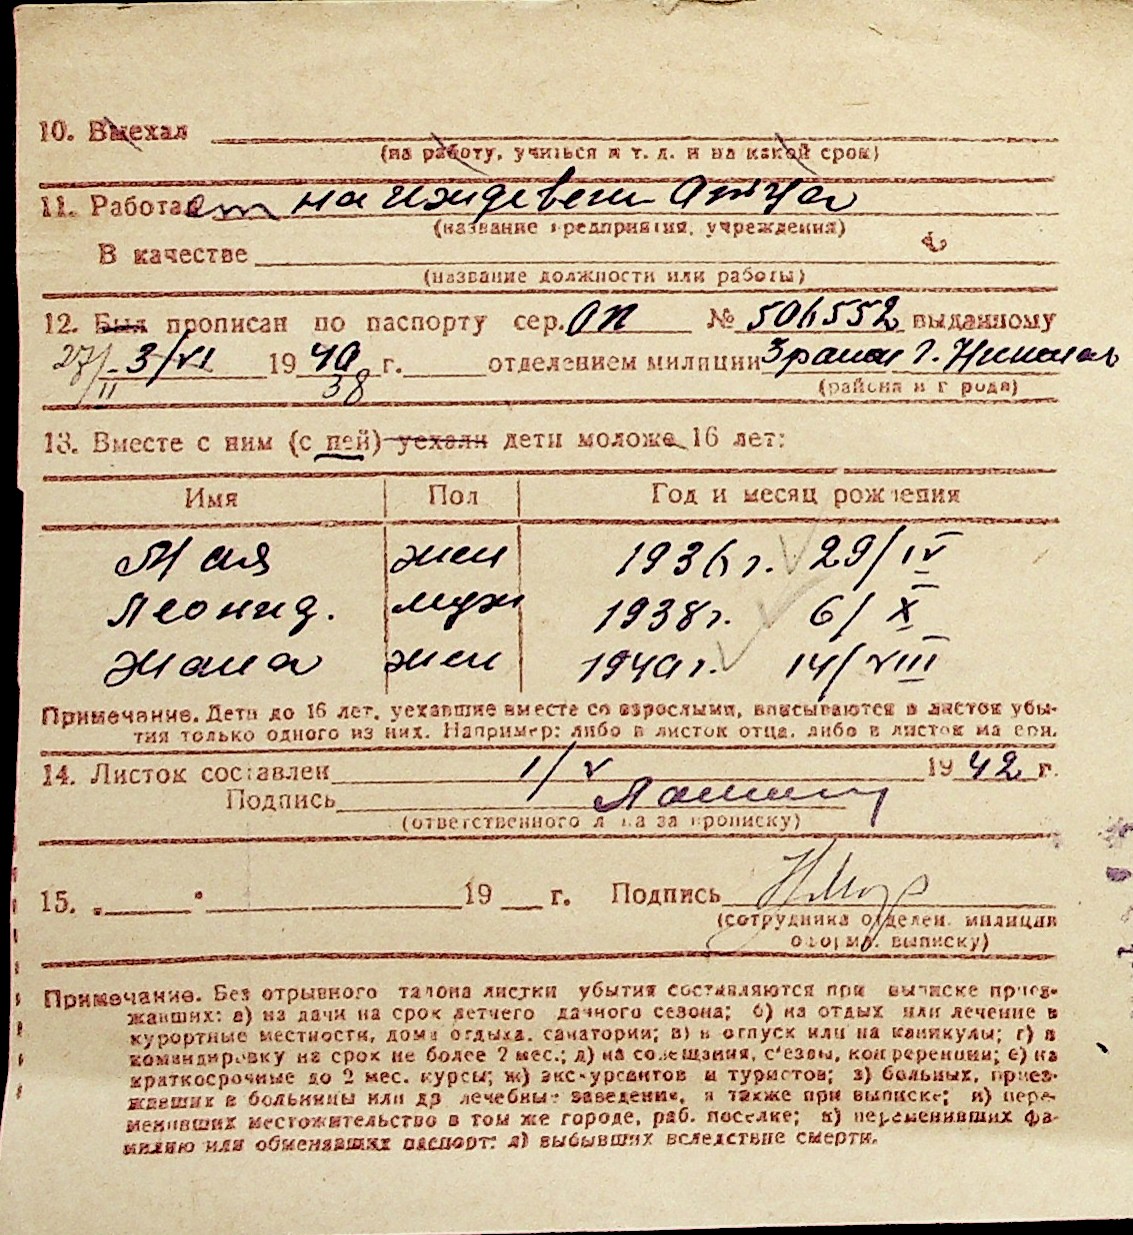 10. Выехал
(на работу, учиться и т. д. и на какой срок)
11. Работает на иждевени отца
(название предприятия, учреждения)
В качестве
(название должности или работы)
12. Был прописан по паспорту сер. ОП № 506552 выданному
27/II - 3/VI 1940 г. отделением милиции 3 раион г. Николаев
38 (района и города)
13. Вместе с ним (с ней) уехали дети моложе 16 лет:
Имя Пол Год и месяц рождения
Мая жен 1936 г. 29/IV
Леонид. муж 1938 г. 6/X
Жана жен 1940 г. 14/VIII
Примечание. Дети до 16 лет, уехавшие вместе со взрослыми, вписываются в листок убы-
тия только одного из них. Например: либо в листок отца, либо в листок матери.
14. Листок составлен 1/V 1942 г.
Подпись
(ответственного лица за прописку)
15. „ “ 19 г. Подпись
(сотрудника отделен. милиции
оформл. выписку)
Примечание. Без отрывного талона листки убытия составляются при выписке приез-
жавших: а) на дачи на срок летнего дачного сезона; б) на отдых или лечение в
курортные местности, дома отдыха, санатории; в) в отпуск или на каникулы; г) в
командировку на срок не более 2 мес.; д) на совещания, с'езды, конференции; е) на
краткосрочные до 2 мес. курсы; ж) экскурсантов и туристов; з) больных, приез-
жавших в больницы или др лечебные заведения, а также при выписке; и) пере-
менивших местожительство в том же городе, раб. поселке; к) переменивших фа-
милию или обменявших паспорт; л) выбывших вследствие смерти.